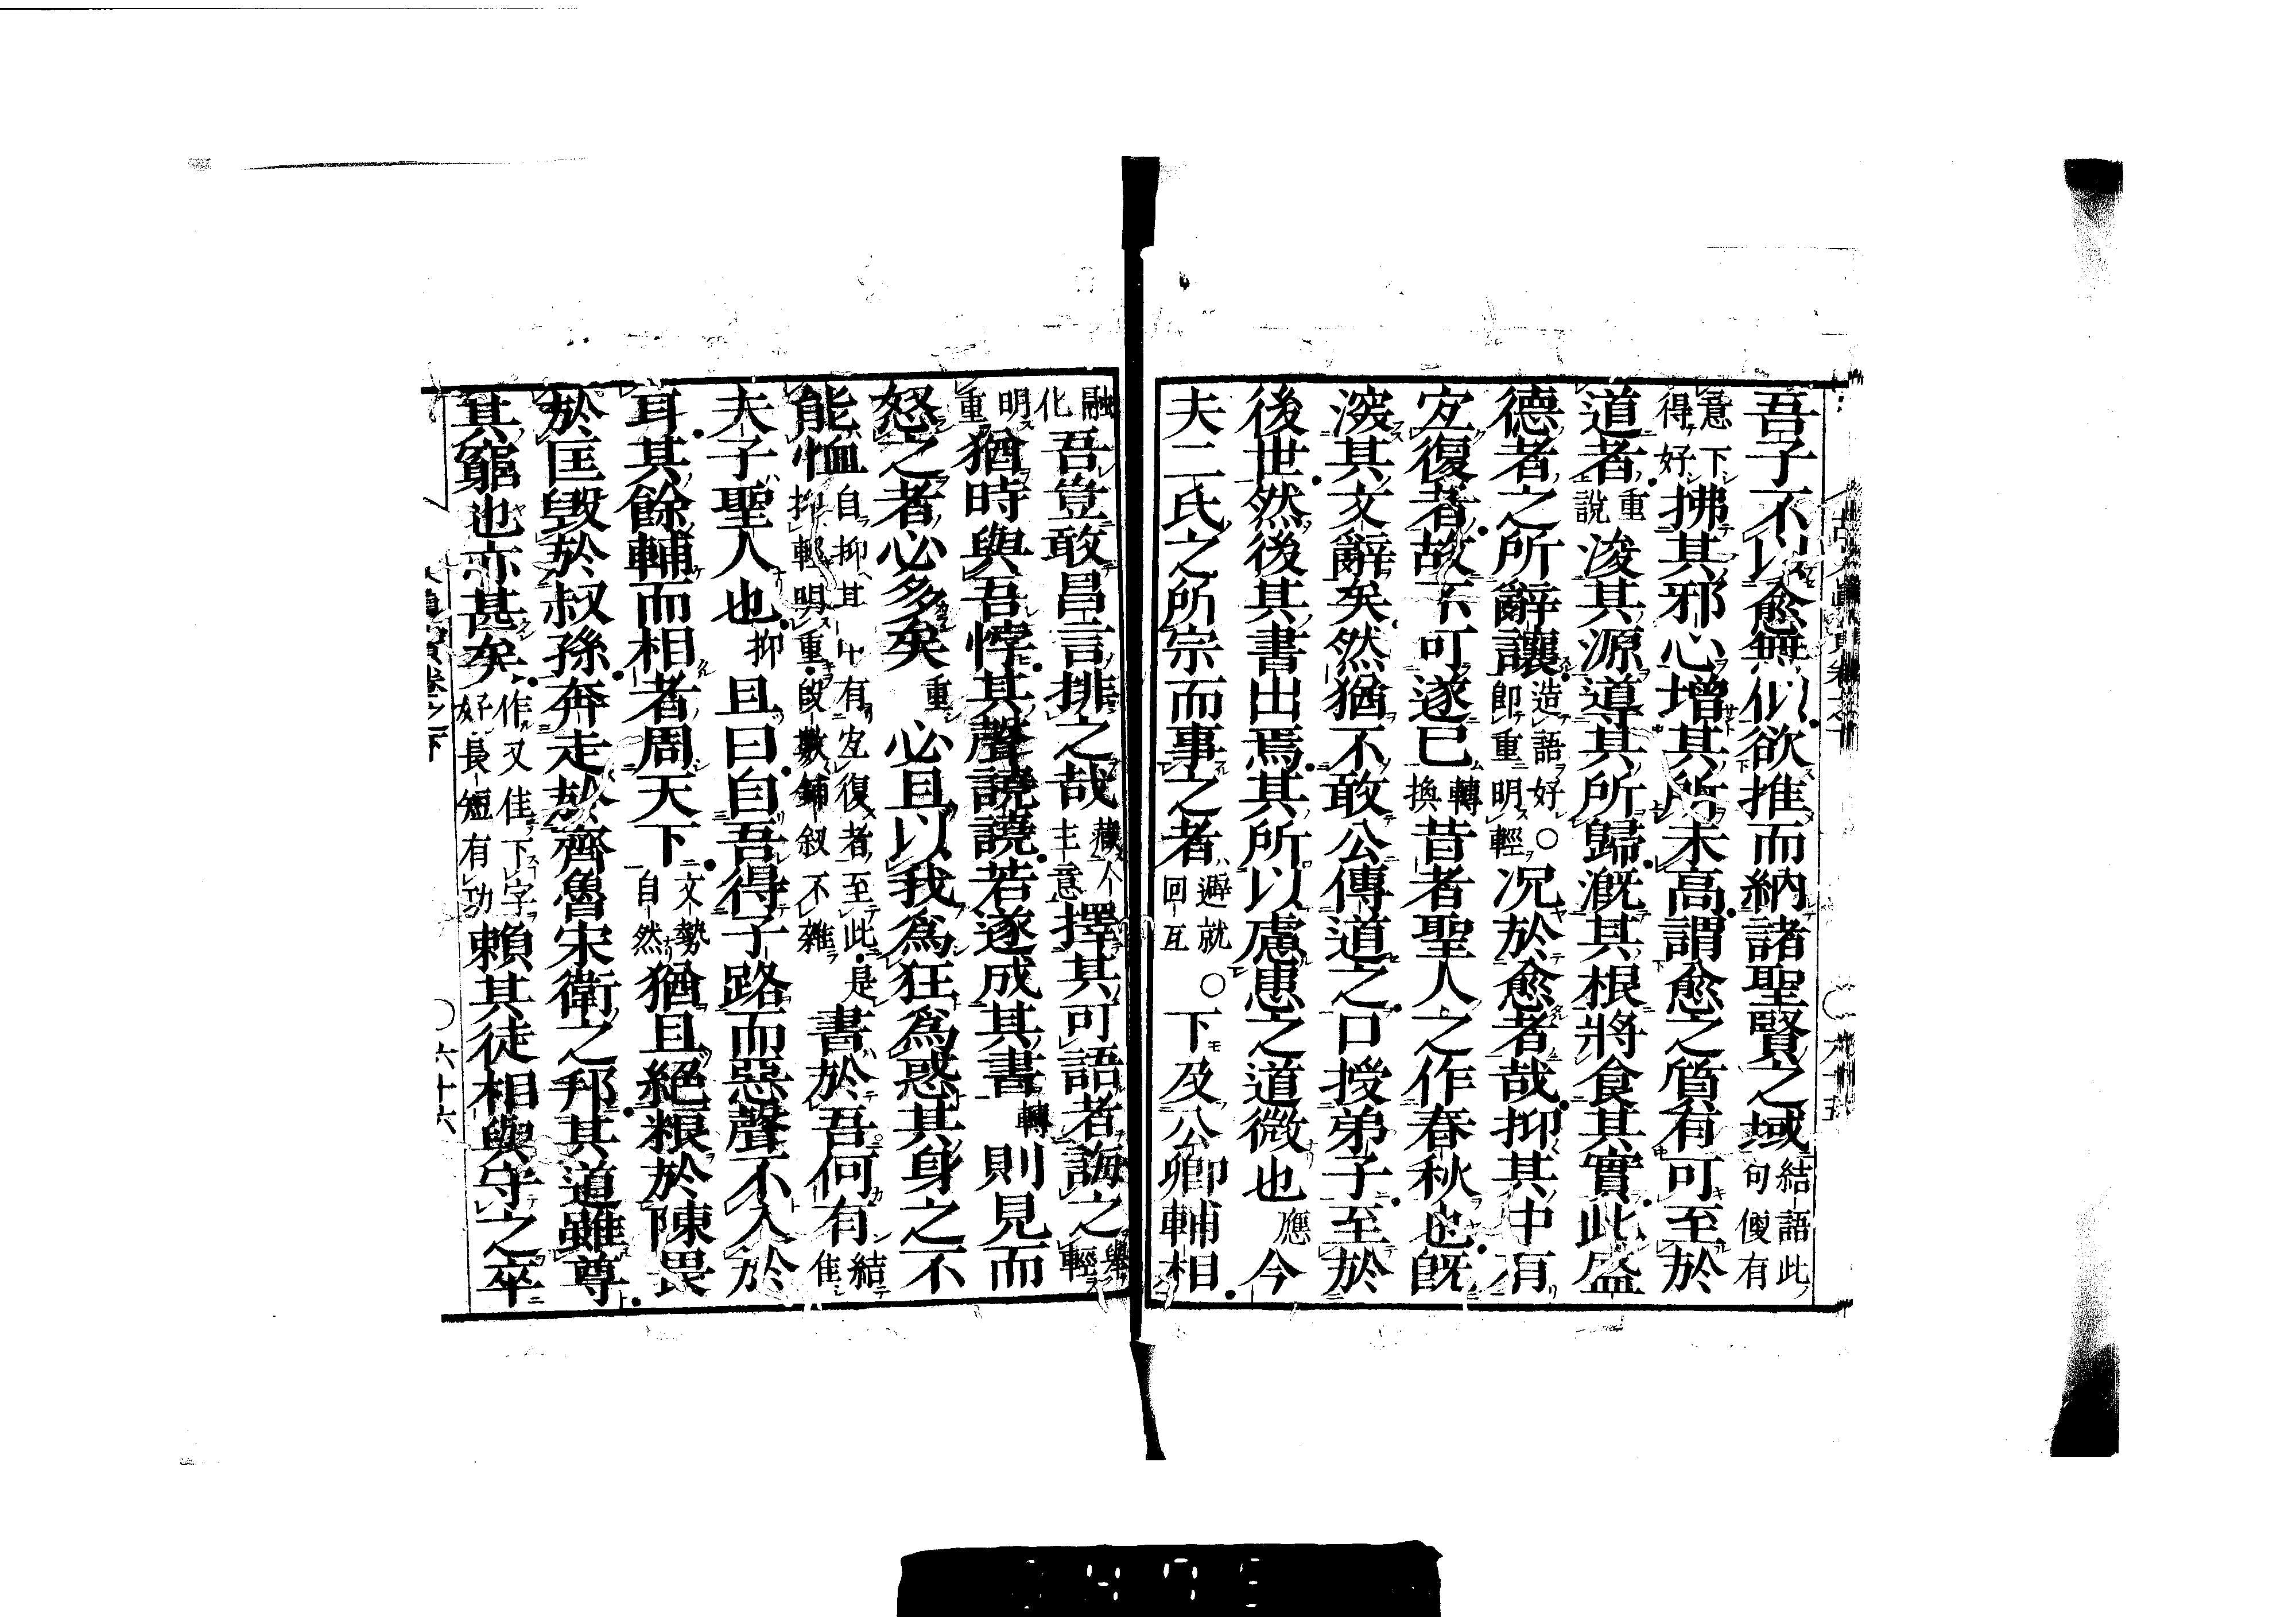 吾子不以愈無似欲推而納諸聖賢之域結語此句便有
意下得好拂其邪心增其所未高謂愈之質有可至於
道者重說浚其源導其所歸漑其根將食其實此盛
德者之所辭讓造語好即重明輕○况於愈者哉抑其中有
宐復者故不可遂已轉換昔者聖人之作春秋也旣
深其文辭矣然猶不敢公傳道之口授弟子至於
後世然後其書出焉其所以慮患之道微也應今
夫二氏之所宗而事之者避就回互○下及公卿輔相
融化吾豈敢昌言排之哉藏个主意擇其可語者誨之舉輕
明重猶時與吾悖其聲譊譊若遂成其書轉則見而
怒之者必多矣重必且以我爲狂爲惑其身之不
能恤自抑其中有宐復者至此是抑輕明重段數鋪叙不雜書於吾何有結佳
夫子聖人也抑且曰自吾得子路而惡聲不入於
耳其餘輔而相者周天下文勢自然猶且絕粮於陳畏
於匡毀於叔孫奔走於齊魯宋衛之邦其道雖尊
其窮也亦甚矣作又佳下字好長短有功賴其徒相與守之卒
六十六